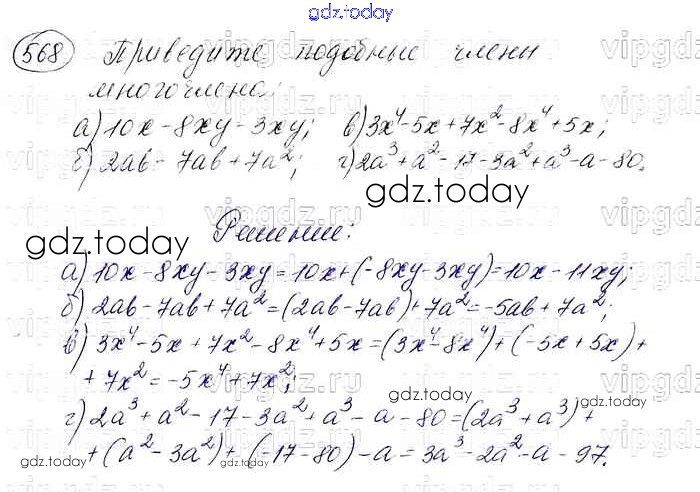 gdz.today
568 Приведите подобные члены
многочлена:
а) 10x - 8xy - 3xy; в) 3x⁴ - 5x + 7x² - 8x⁴ + 5x;
б) 2ab - 7ab + 7a²; г) 2a³ + a² - 17 - 3a² + a³ - a - 80.
gdz.today
gdz.today
Решение:
а) 10x - 8xy - 3xy = 10x + (-8xy - 3xy) = 10x - 11xy;
б) 2ab - 7ab + 7a² = (2ab - 7ab) + 7a² = -5ab + 7a²;
в) 3x⁴ - 5x + 7x² - 8x⁴ + 5x = (3x⁴ - 8x⁴) + (-5x + 5x) +
+ 7x² = -5x⁴ + 7x²;
gdz.today
г) 2a³ + a² - 17 - 3a² + a³ - a - 80 = (2a³ + a³) +
+ (a² - 3a²) + (-17 - 80) - a = 3a³ - 2a² - a - 97.
gdz.today
gdz.today